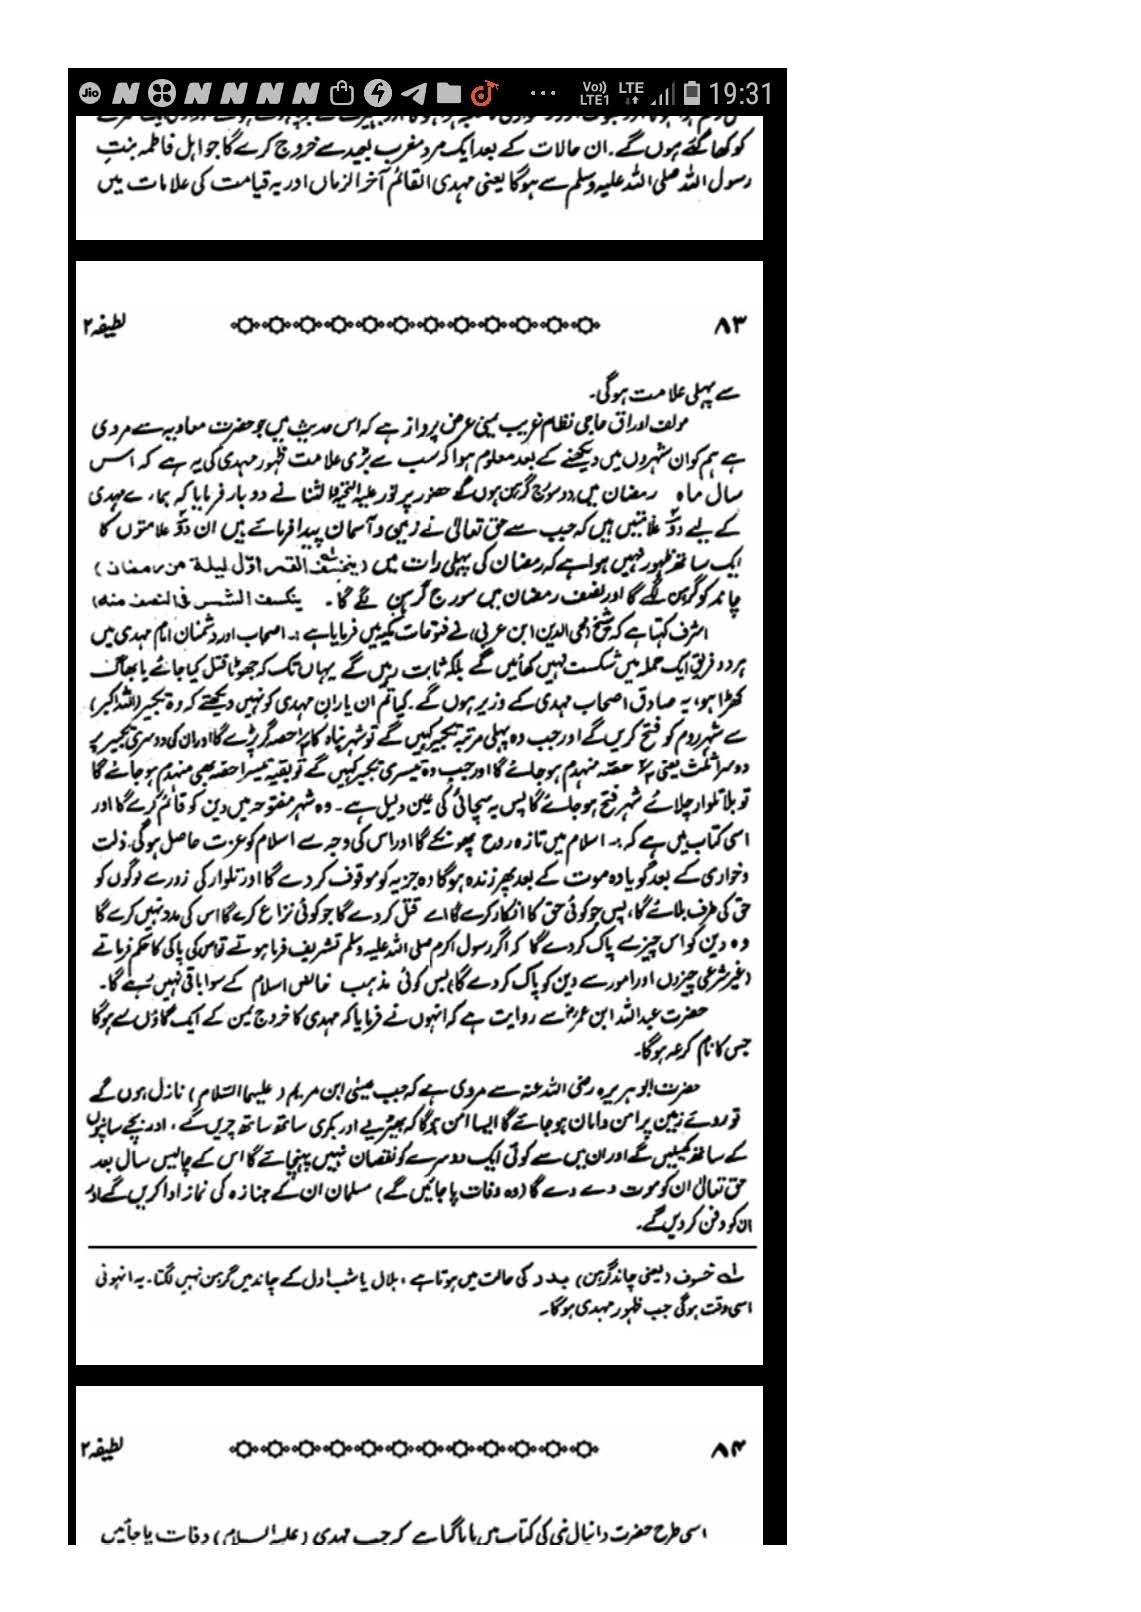 Jio Vo) LTE1 LTE 19:31
کو کھا گئے ہوں گے۔ ان حالات کے بعد ایک مرد مغرب بعید سے خروج کرے گا جو اہل فاطمہ بنتِ
رسول اللہ صلی اللہ علیہ وسلم سے ہوگا یعنی مہدی القائم آخر الزماں اور یہ قیامت کی علامات میں
۸۳ لطیفہ ۲
سے پہلی علامت ہوگی۔
مولف اوراق حاجی نظام غریب یمنی عرض پرداز ہے کہ اس حدیث میں جو حضرت معاویہ سے مروی
ہے ہم کو ان شہروں میں دیکھنے کے بعد معلوم ہوا کہ سب سے بڑی علامت ظہور مہدی کی یہ ہے کہ اس
سال ماہ رمضان میں دو سورج گرہن ہوں گے حضور پر نور علیہ التحیۃ والثنا نے دو بار فرمایا کہ ہمارے مہدی
کے لیے دو علامتیں ہیں کہ جب سے حق تعالیٰ نے زمین و آسمان پیدا فرمائے ہیں ان دو علامتوں کا
ایک ساتھ ظہور نہیں ہوا ہے کہ رمضان کی پہلی رات میں (ینخسف القمر اوّل لیلۃ من رمضان)
چاند کو گرہن لگے گا اور نصف رمضان میں سورج گرہن لگے گا۔ ینکسف الشمس فی النصف منہ)
اشرف کہتا ہے کہ شیخ (محی الدین ابن عربی) نے فتوحات مکیہ میں فرمایا ہے :۔ اصحاب اور دشمنان امام مہدی میں
ہر دو فریق ایک حملہ میں شکست نہیں کھائیں گے بلکہ ثابت رہیں گے یہاں تک کہ جھوٹا قتل کیا جائے یا بھاگ
کھڑا ہو، یہ صادق اصحاب مہدی کے وزیر ہوں گے۔ کیا تم ان یاران مہدی کو نہیں دیکھتے کہ وہ تکبیر (اللہ اکبر)
سے شہر روم کو فتح کریں گے اور جب وہ پہلی مرتبہ تکبیر کہیں گے تو شہر پناہ کا حصہ گر پڑے گا اور ان کی دوسری تکبیر پر
دوسرا ثلث یعنی حصہ منہدم ہو جائے گا اور جب وہ تیسری تکبیر کہیں گے تو بقیہ تیسرا حصہ بھی منہدم ہو جائے گا
تو بلا تلوار چلائے شہر فتح ہو جائے گا پس یہ سچائی کی عین دلیل ہے۔ وہ شہر مفتوحہ میں دین کو قائم کرے گا اور
اسی کتاب میں ہے کہ :۔ اسلام میں تازہ روح پھونکے گا اور اس کی وجہ سے اسلام کو عزت حاصل ہوگی۔ ذلت
و خواری کے بعد گویا وہ موت کے بعد پھر زندہ ہوگا وہ جزیہ کو موقوف کر دے گا اور تلوار کی زور سے لوگوں کو
حق کی طرف بلائے گا، پس جو کوئی حق کا انکار کرے گا اسے قتل کر دے گا جو کوئی نزاع کرے گا اس کی مدد نہیں کرے گا
وہ دین کو اس چیز سے پاک کر دے گا کہ اگر رسول اکرم صلی اللہ علیہ وسلم تشریف فرما ہوتے تو اس کی پاکی کا حکم فرماتے
(غیر شرعی چیزوں اور امور سے دین کو پاک کر دے گا) پس کوئی مذہب خالص اسلام کے سوا باقی نہیں رہے گا۔
حضرت عبد اللہ ابن عمرؓ سے روایت ہے کہ انہوں نے فرمایا کہ مہدی کا خروج یمن کے ایک گاؤں سے ہوگا
جس کا نام کرعہ ہوگا۔
حضرت ابو ہریرہ رضی اللہ عنہ سے مروی ہے کہ جب عیسیٰ ابن مریم (علیہما السّلام) نازل ہوں گے
تو روئے زمین پر امن و امان ہو جائے گا ایسا امن ہوگا کہ بھیڑیے اور بکری ساتھ ساتھ چریں گے، اور بچے سانپوں
کے ساتھ کھیلیں گے اور ان میں سے کوئی ایک دوسرے کو نقصان نہیں پہنچائے گا اس کے چالیس سال بعد
حق تعالیٰ ان کو موت دے دے گا (وہ وفات پا جائیں گے) مسلمان ان کے جنازہ کی نماز ادا کریں گے اور
ان کو دفن کر دیں گے۔
لہ خسوف (یعنی چاند گرہن) بدر کی حالت میں ہوتا ہے، ہلال یا شب اول کے چاند میں گرہن نہیں لگتا۔ یہ انہونی
اسی وقت ہوگی جب ظہور مہدی ہوگا۔
۸۴ لطیفہ ۲
اسی طرح حضرت دانیال نبی کی کتاب میں پایا گیا ہے کہ جب مہدی (علیہ السلام) وفات پا جائیں